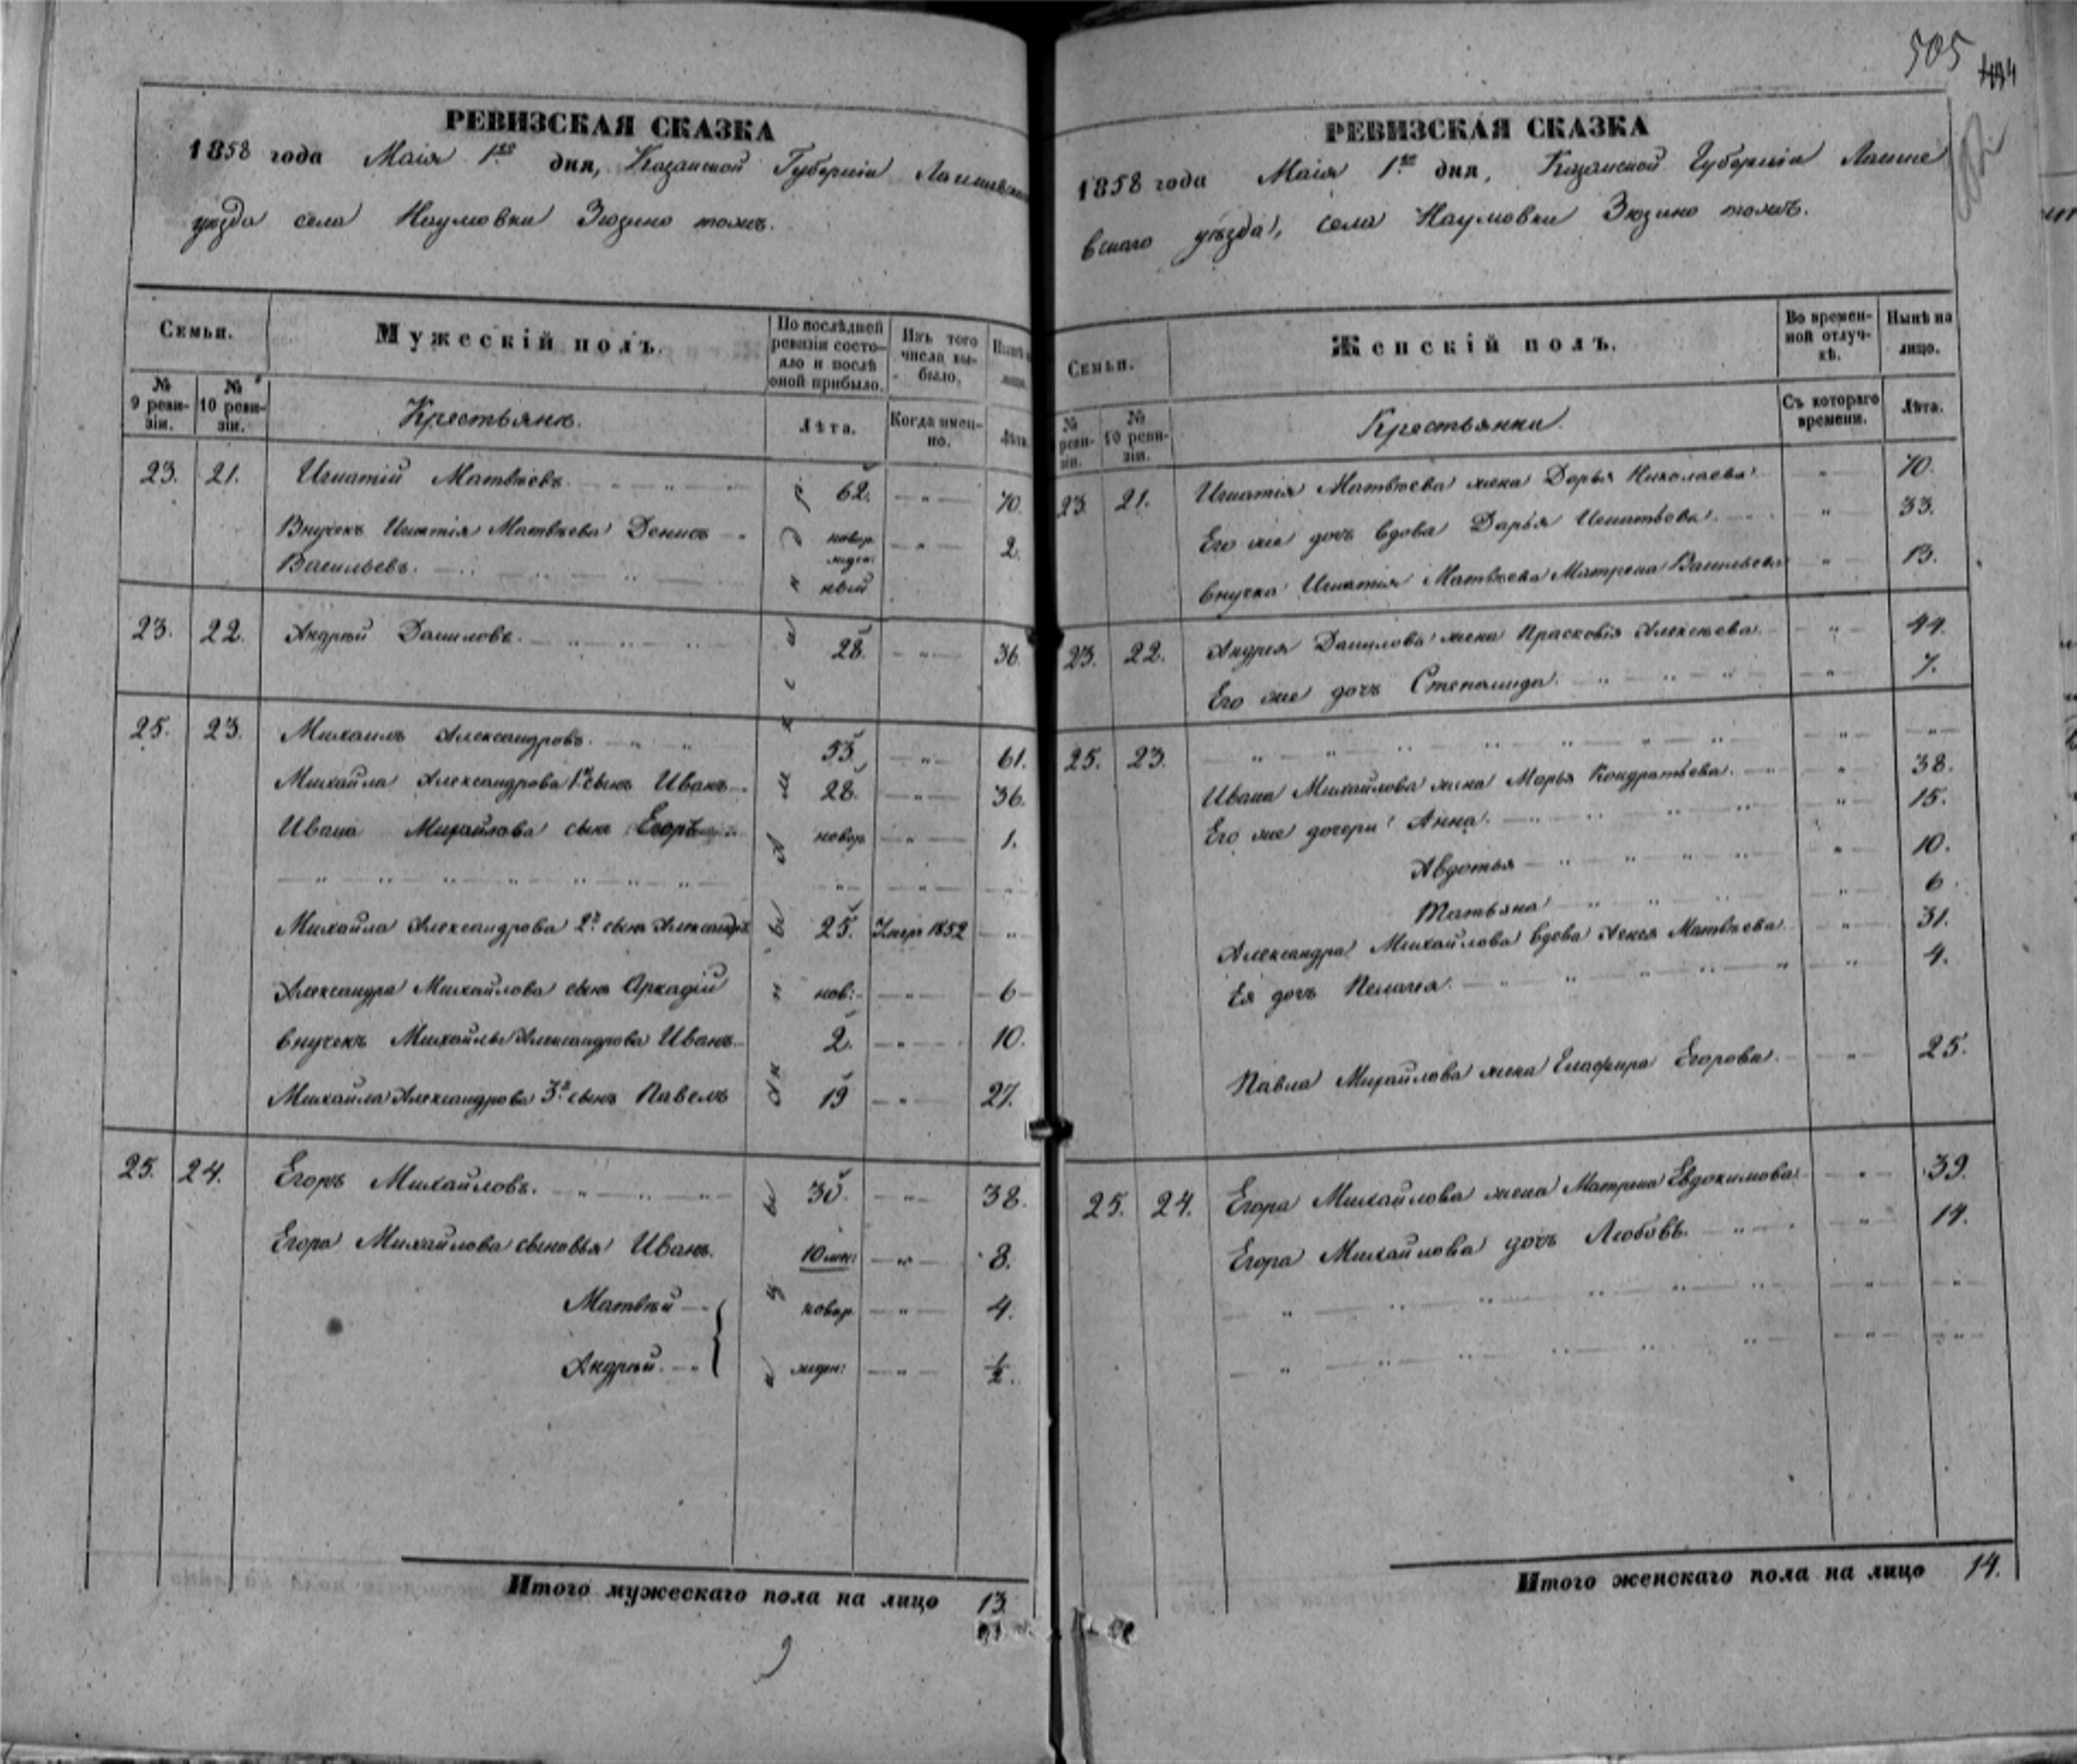 РЕВИЗСКАЯ СКАЗКА
1858 года Маія 1го дня, Казанской Губерніи Лаишевска
уѣзда села Наумовки Зюзино тожъ.
Семьи.
Мужескій полъ.
По послѣдней ревизіи состояло и послѣ оной прибыло.
Изъ того числа выбыло.
№ 9 ревизіи.
№ 10 ревизіи.
Крестьянъ.
Лѣта.
Когда именно.
Лѣта
23. 21. Игнатій Матвѣевъ. 62. 70.
Внучекъ Игнатія Матвѣева Денисъ новор 2.
Васильевъ. ный
23. 22. Андрей Даниловъ. 28. 36.
25. 23. Михаилъ Александровъ. 53. 61.
Михайла Александрова 1й сынъ Иванъ 28. 36.
Ивана Михайлова сын Егоръ новор 1.
Михайла Александрова 2й сынъ Александръ 25. Умеръ 1852
Александра Михайлова сынъ Аркадій нов: 6
внучекъ Михайлы Александрова Иванъ 2. 10.
Михайла Александрова 3й сынъ Павелъ 19 27.
25. 24. Егоръ Михайловъ. 30. 38.
Егора Михайлова сыновья Иванъ. 10 мес: 8.
Матвѣй новор 4.
Андрей. жден: 1/2.
Итого мужескаго пола на лицо 13
505
РЕВИЗСКАЯ СКАЗКА
1858 года Маія 1го дня, Казанской Губерніи Лаише
вскаго уѣзда, села Наумовки Зюзино тожъ.
Семьи.
Женскій полъ.
Во временной отлучкѣ.
Нынѣ на лицо.
№ реви-
зіи.
№ 10 ревизіи.
Крестьянки.
Съ котораго времени.
Лѣта.
23. 21. Игнатія Матвѣева жена Дарья Николаева 70.
Его же дочь вдова Дарья Игнатьева. 33.
внучка Игнатія Матвѣева Матрена Васильева 13.
23. 22. Андрея Данилова жена Прасковія Алексѣева. 44.
Его же дочь Степанида. 7.
25. 23.
Ивана Михайлова жена Марья Кондратьева. 38.
Его же дочери Анна. 15.
Авдотья 10.
Татьяна 6.
Александра Михайлова вдова Агнея Матвѣева. 31.
Ея дочь Пелагея. 4.
Павла Михайлова жена Глафира Егорова. 25.
25. 24. Егора Михайлова жена Матрена Евдокимова 39.
Егора Михайлова дочь Любовь. 14.
Итого женскаго пола на лицо 14.